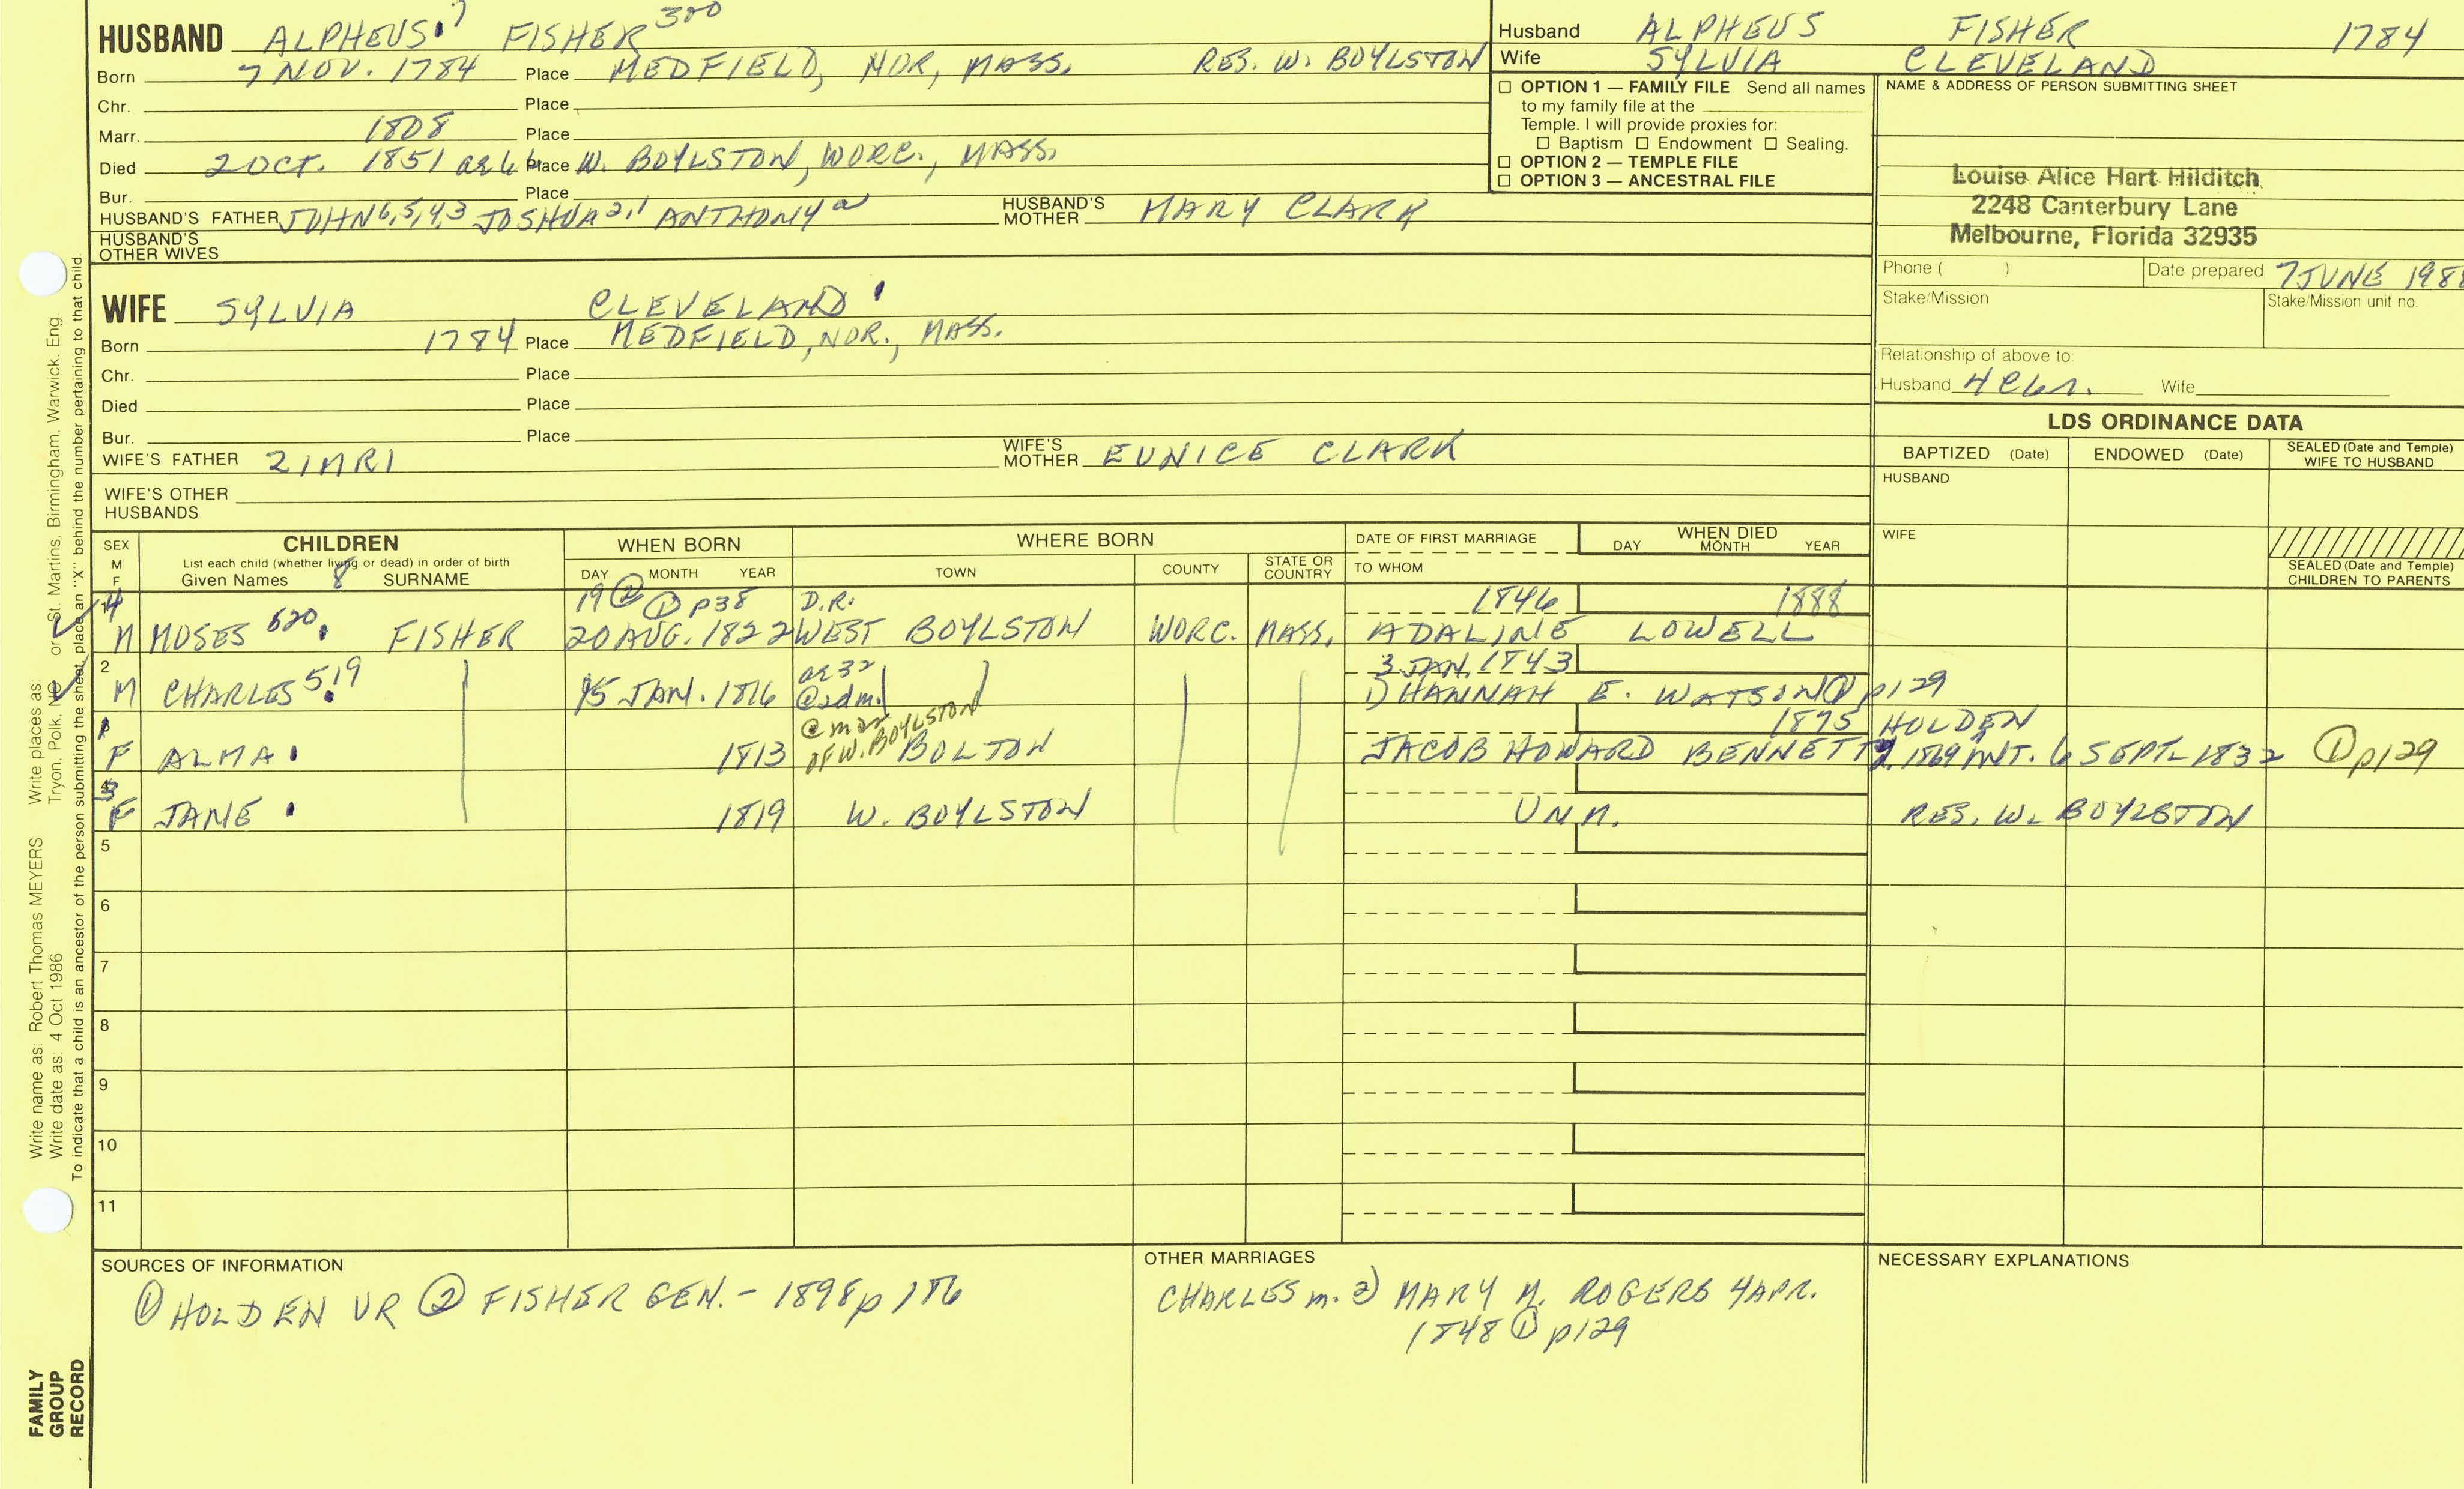 HUSBAND ALPHEUS 7 FISHER 300
Born 7 NOV. 1784 Place MEDFIELD, NOR, MASS. RES. W. BOYLSTON
Chr. Place
Marr. 1808 Place
Died 2 OCT. 1851 Place W. BOYLSTON, WORC., MASS.
Bur. Place
HUSBAND'S FATHER JOHN 6,5,4,3 JOSHUA 2,1 ANTHONY a HUSBAND'S MOTHER MARY CLARK
HUSBAND'S OTHER WIVES
Husband ALPHEUS FISHER 1784
Wife SYLVIA CLEVELAND
☐ OPTION 1 — FAMILY FILE Send all names
to my family file at the
Temple. I will provide proxies for:
☐ Baptism ☐ Endowment ☐ Sealing.
☐ OPTION 2 — TEMPLE FILE
☐ OPTION 3 — ANCESTRAL FILE
NAME & ADDRESS OF PERSON SUBMITTING SHEET
Louise Alice Hart Hilditch
2248 Canterbury Lane
Melbourne, Florida 32935
Phone ( ) Date prepared 7 JUNE 198
Stake/Mission Stake/Mission unit no.
Relationship of above to:
Husband Wife
WIFE SYLVIA CLEVELAND
Born 1784 Place MEDFIELD, NOR., MASS.
Chr. Place
Died Place
Bur. Place
WIFE'S FATHER ZIMRI WIFE'S MOTHER EUNICE CLARK
WIFE'S OTHER HUSBANDS
LDS ORDINANCE DATA
BAPTIZED (Date) ENDOWED (Date) SEALED (Date and Temple) WIFE TO HUSBAND
HUSBAND
WIFE
SEALED (Date and Temple) CHILDREN TO PARENTS
SEX M F CHILDREN WHEN BORN WHERE BORN DATE OF FIRST MARRIAGE WHEN DIED
List each child (whether living or dead) in order of birth
Given Names 8 SURNAME DAY MONTH YEAR TOWN COUNTY STATE OR COUNTRY TO WHOM DAY MONTH YEAR
4 19 ② ① p38 D.R. 1846 1888
M MOSES 620 FISHER 20 AUG. 1822 WEST BOYLSTON WORC. MASS. ADALINE LOWELL
2 ae 32 3 JAN. 1843
M CHARLES 519 15 JAN. 1816 @2dm. 1) HANNAH E. WATSON ① p129
@mar OF W. BOYLSTON 1875 HOLDEN
F ALMA 1813 BOLTON JACOB HOWARD BENNETT 1869 INT. 6 SEPT. 1832 ① p129
3
F JANE 1819 W. BOYLSTON UNM. RES. W. BOYLSTON
5
6
7
8
9
10
11
SOURCES OF INFORMATION
① HOLDEN VR ② FISHER GEN. - 1898 p 186
OTHER MARRIAGES
CHARLES m. 2) MARY M. ROGERS 4 APR.
1848 ① p129
NECESSARY EXPLANATIONS
Write name as: Robert Thomas MEYERS Write places as: Tryon, Polk, NC or St. Martins, Birmingham, Warwick, Eng.
Write date as: 4 Oct 1986
To indicate that a child is an ancestor of the person submitting the sheet, place an "X" behind the number pertaining to that child.
FAMILY
GROUP
RECORD